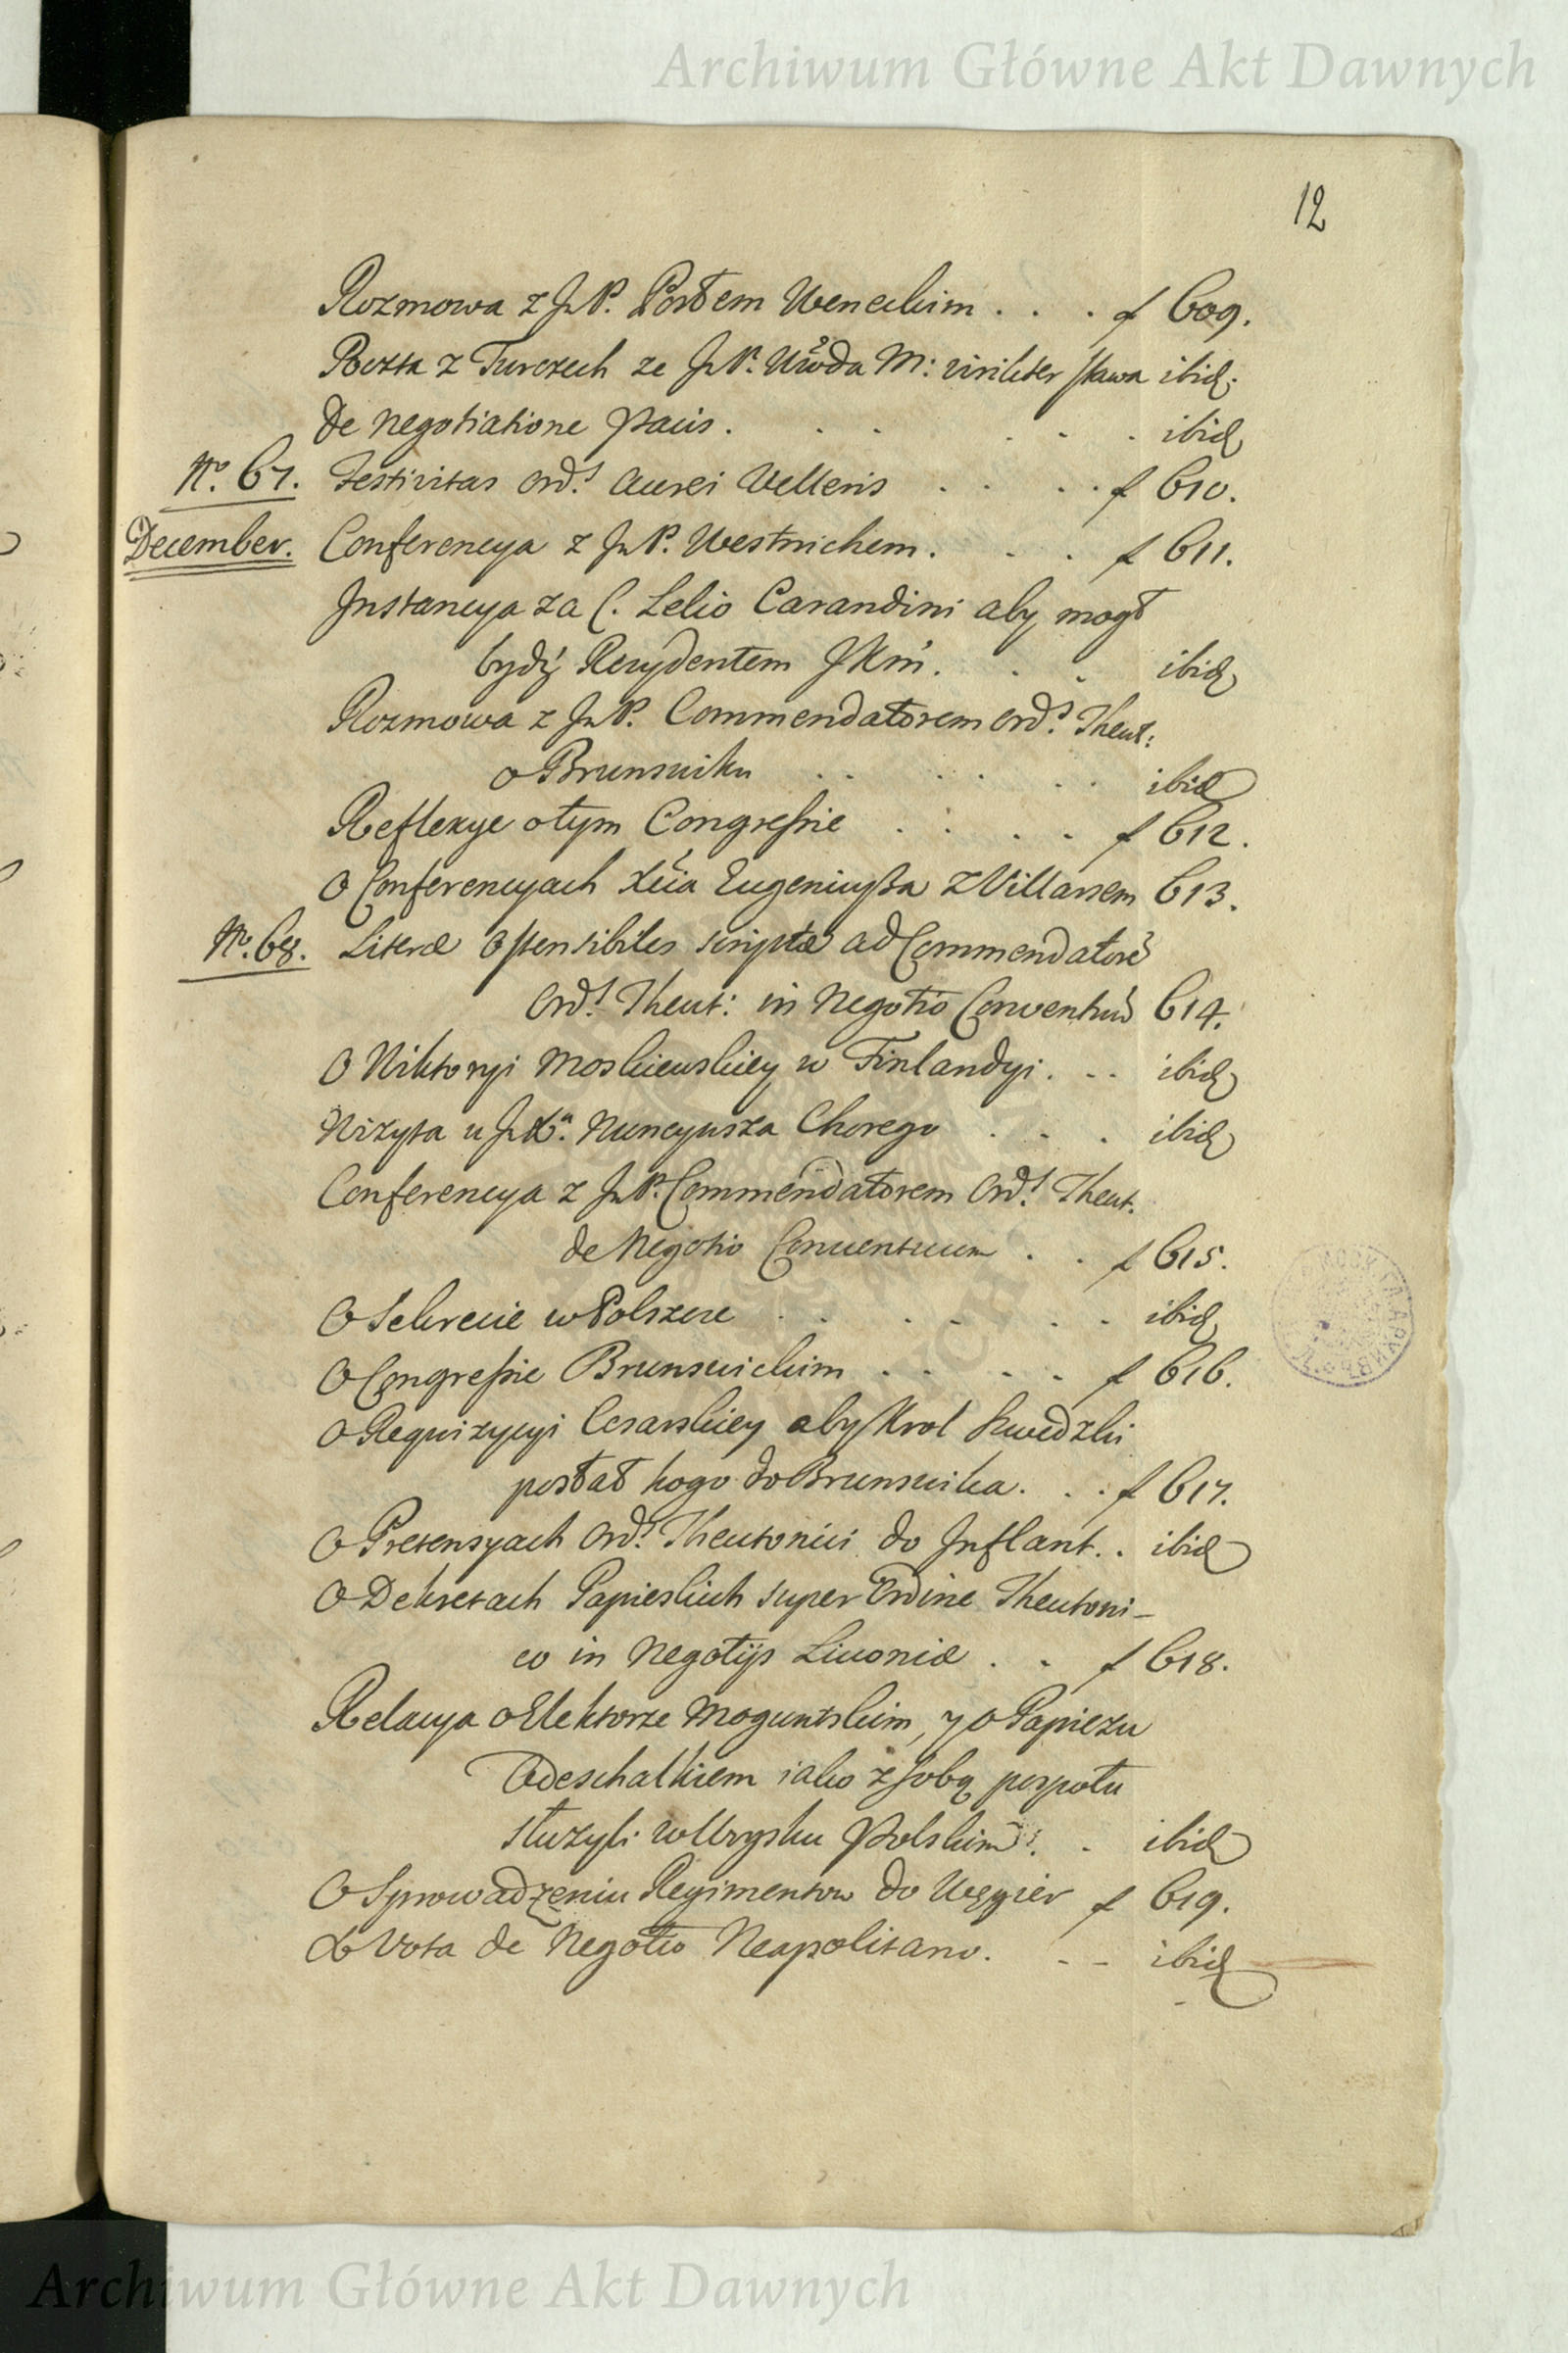 Archiwum Główne Akt Dawnych
12
Rozmowa z JmP. Posłem Weneckim . . . f 609.
Poczta z Turczech ze JmP. Wwda M: viriliter stawa ibid:
De negotiatione Pacis . . . . . . ibid
No. 67. Festivitas Ord:s Aurei Velleris . . . . f 610.
December. Conferencya z JmP. Westrichem . . . f 611.
Instancya za C. Lelio Carandini aby mogł
bydź Rezydentem JKm. . . ibid
Rozmowa z JmP. Commendatorem Ord:s Theut:
o Brunswiku . . . . . . ibid
Reflexye o tym Congressie . . . . f 612.
O Conferencyach Xcia Eugeniusza z Villarsem 613.
No. 68. Literæ ostensibiles scriptæ ad Commendatorē
Ord:s Theut: in Negotio Conventuū 614.
O Wiktoryi Moskiewskiey w Finlandyi . . . ibid
Wizyta u JmX. Nuncyusza Chorego . . . ibid
Conferencya z JmP. Commendatorem Ord:s Theut.
de Negotio Conventuum . . f 615.
O Sekrecie w Polszcze . . . . . . ibid
O Congressie Brunswickim . . . . f 616.
O Requizycyi Cesarskiey aby Krol Szwedzki
posłał kogo do Brunswika . . . f 617.
O Pretensyach Ord:s Theutonici do Inflant . . ibid
O Dekretach Papieskich super Ordine Theutoni-
co in Negotijs Livoniæ . . f 618.
Relacya o Elektorze Moguntskim, y o Papiezu
Odeschalkiem iako z sobą pospołu
słuzyli w Woysku Polskim . . ibid
O Sprowadzeniu Regimentow do Węgier f 619.
Vota de Negotio Neapolitano . . . ibid
Archiwum Główne Akt Dawnych